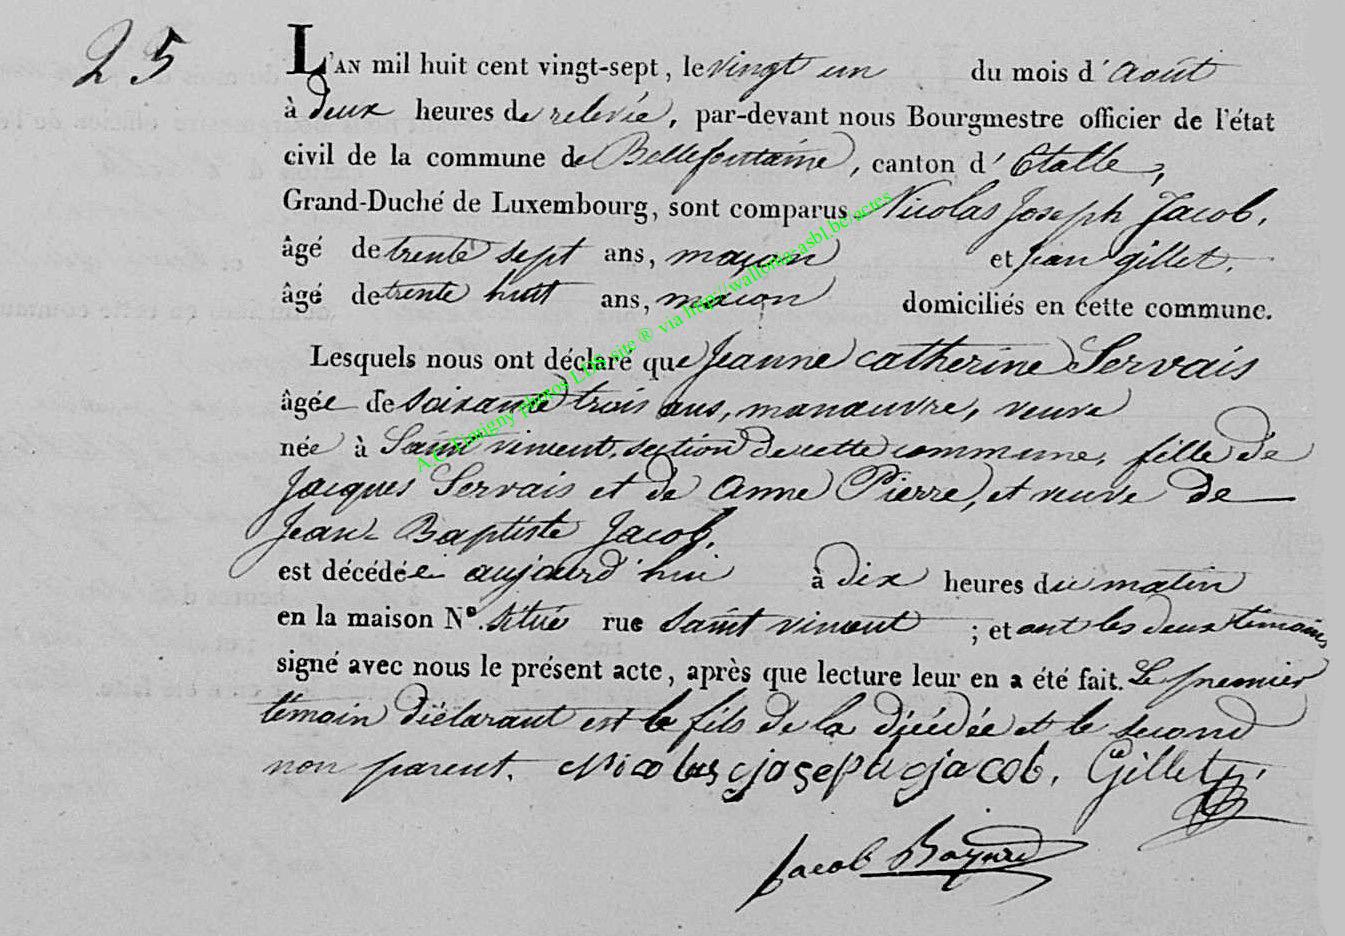 25
L'AN mil huit cent vingt-sept, le vingt un du mois d'août
à deux heures de relevée, par-devant nous Bourgmestre officier de l'état
civil de la commune de Bellefontaine, canton d'Etalle,
Grand-Duché de Luxembourg, sont comparus Nicolas Joseph Jacob,
âgé de trente sept ans, maçon et jean gillet.
âgé de trente huit ans, maçon domiciliés en cette commune.
Lesquels nous ont déclaré que Jeanne catherine Servais
âgée de soixante trois ans, manœuvre, veuve
née à Saint vincent, section de cette commune, fille de
Jacques Servais et de anne Pierre, et veuve de
Jean Baptiste Jacob,
est décédée aujourd'hui à dix heures du matin
en la maison Nº. située rue Saint vincent ; et ont les deux témoins
signé avec nous le présent acte, après que lecture leur en a été fait. Le premier
témoin déclarant est le fils de la décédée et le second
non parent. Nicolas joseph jacob, Gillet,
Jacob
A.C. Tintigny photos LDS site ® via http://wallonia.asbl.be/actes